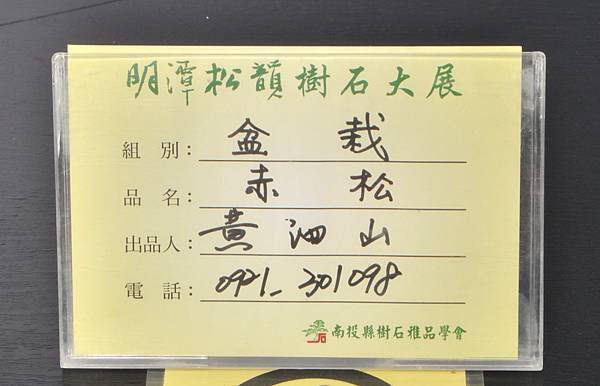 明潭松韻樹石大展
組 別： 盆 栽
品 名： 赤 松
出品人： 黃 泗 山
電 話： 0921-301098
南投縣樹石雅品學會